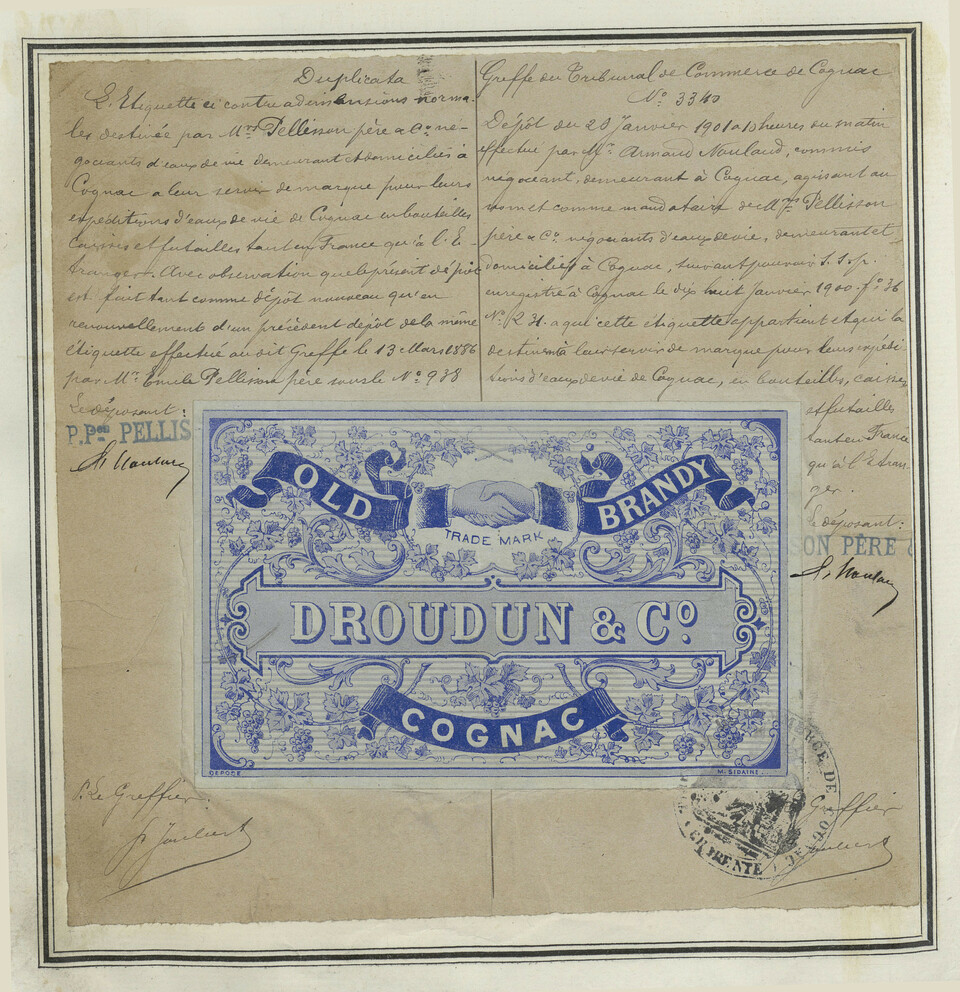 Duplicata
L'Etiquette ci contre a dimensions norma-
les destinée par Mrs Pellisson père & Co né-
gociants d'eaux de vie demeurant et domiciliés à
Cognac a leur servir de marque pour leurs
expéditions d'eaux de vie de Cognac en bouteilles
caisses et futailles tant en France qu'à l'E-
tranger. Avec observation que le présent dépôt
est fait tant comme dépôt nouveau qu'en
renouvellement d'un précédent dépôt de la même
étiquette effectué au dit Greffe le 13 Mars 1886
par Mr Emile Pellisson père sous le No 938
Le déposant:
P.Pon PELLIS
Greffe du Tribunal de Commerce de Cognac
No 3340
Dépôt du 23 Janvier 1901 a 10 heures du matin
effectué par Mr Armand Noulaud, commis
négociant, demeurant à Cognac, agissant au
nom et comme mandataire de Mrs Pellisson
père & Co négociants d'eaux de vie, demeurant et
domiciliés à Cognac, suivant pouvoir s.s.p.
enregistré à Cognac le dix huit Janvier 1900 fo 36
No 231. a qui cette étiquette appartient et qui la
destinent à leur servir de marque pour leurs expédi-
tions d'eaux de vie de Cognac, en bouteilles, caisses
et futailles
tant en France
qu'à l'Etran-
ger.
Le déposant:
SON PÈRE &
OLD BRANDY
TRADE MARK
DROUDUN & Co
COGNAC
DEPOSE
M. SIDAINE.
P. Le Greffier
P. Joubert
Greffier
Joubert
COMMERCE DE COGNAC
CHARENTE